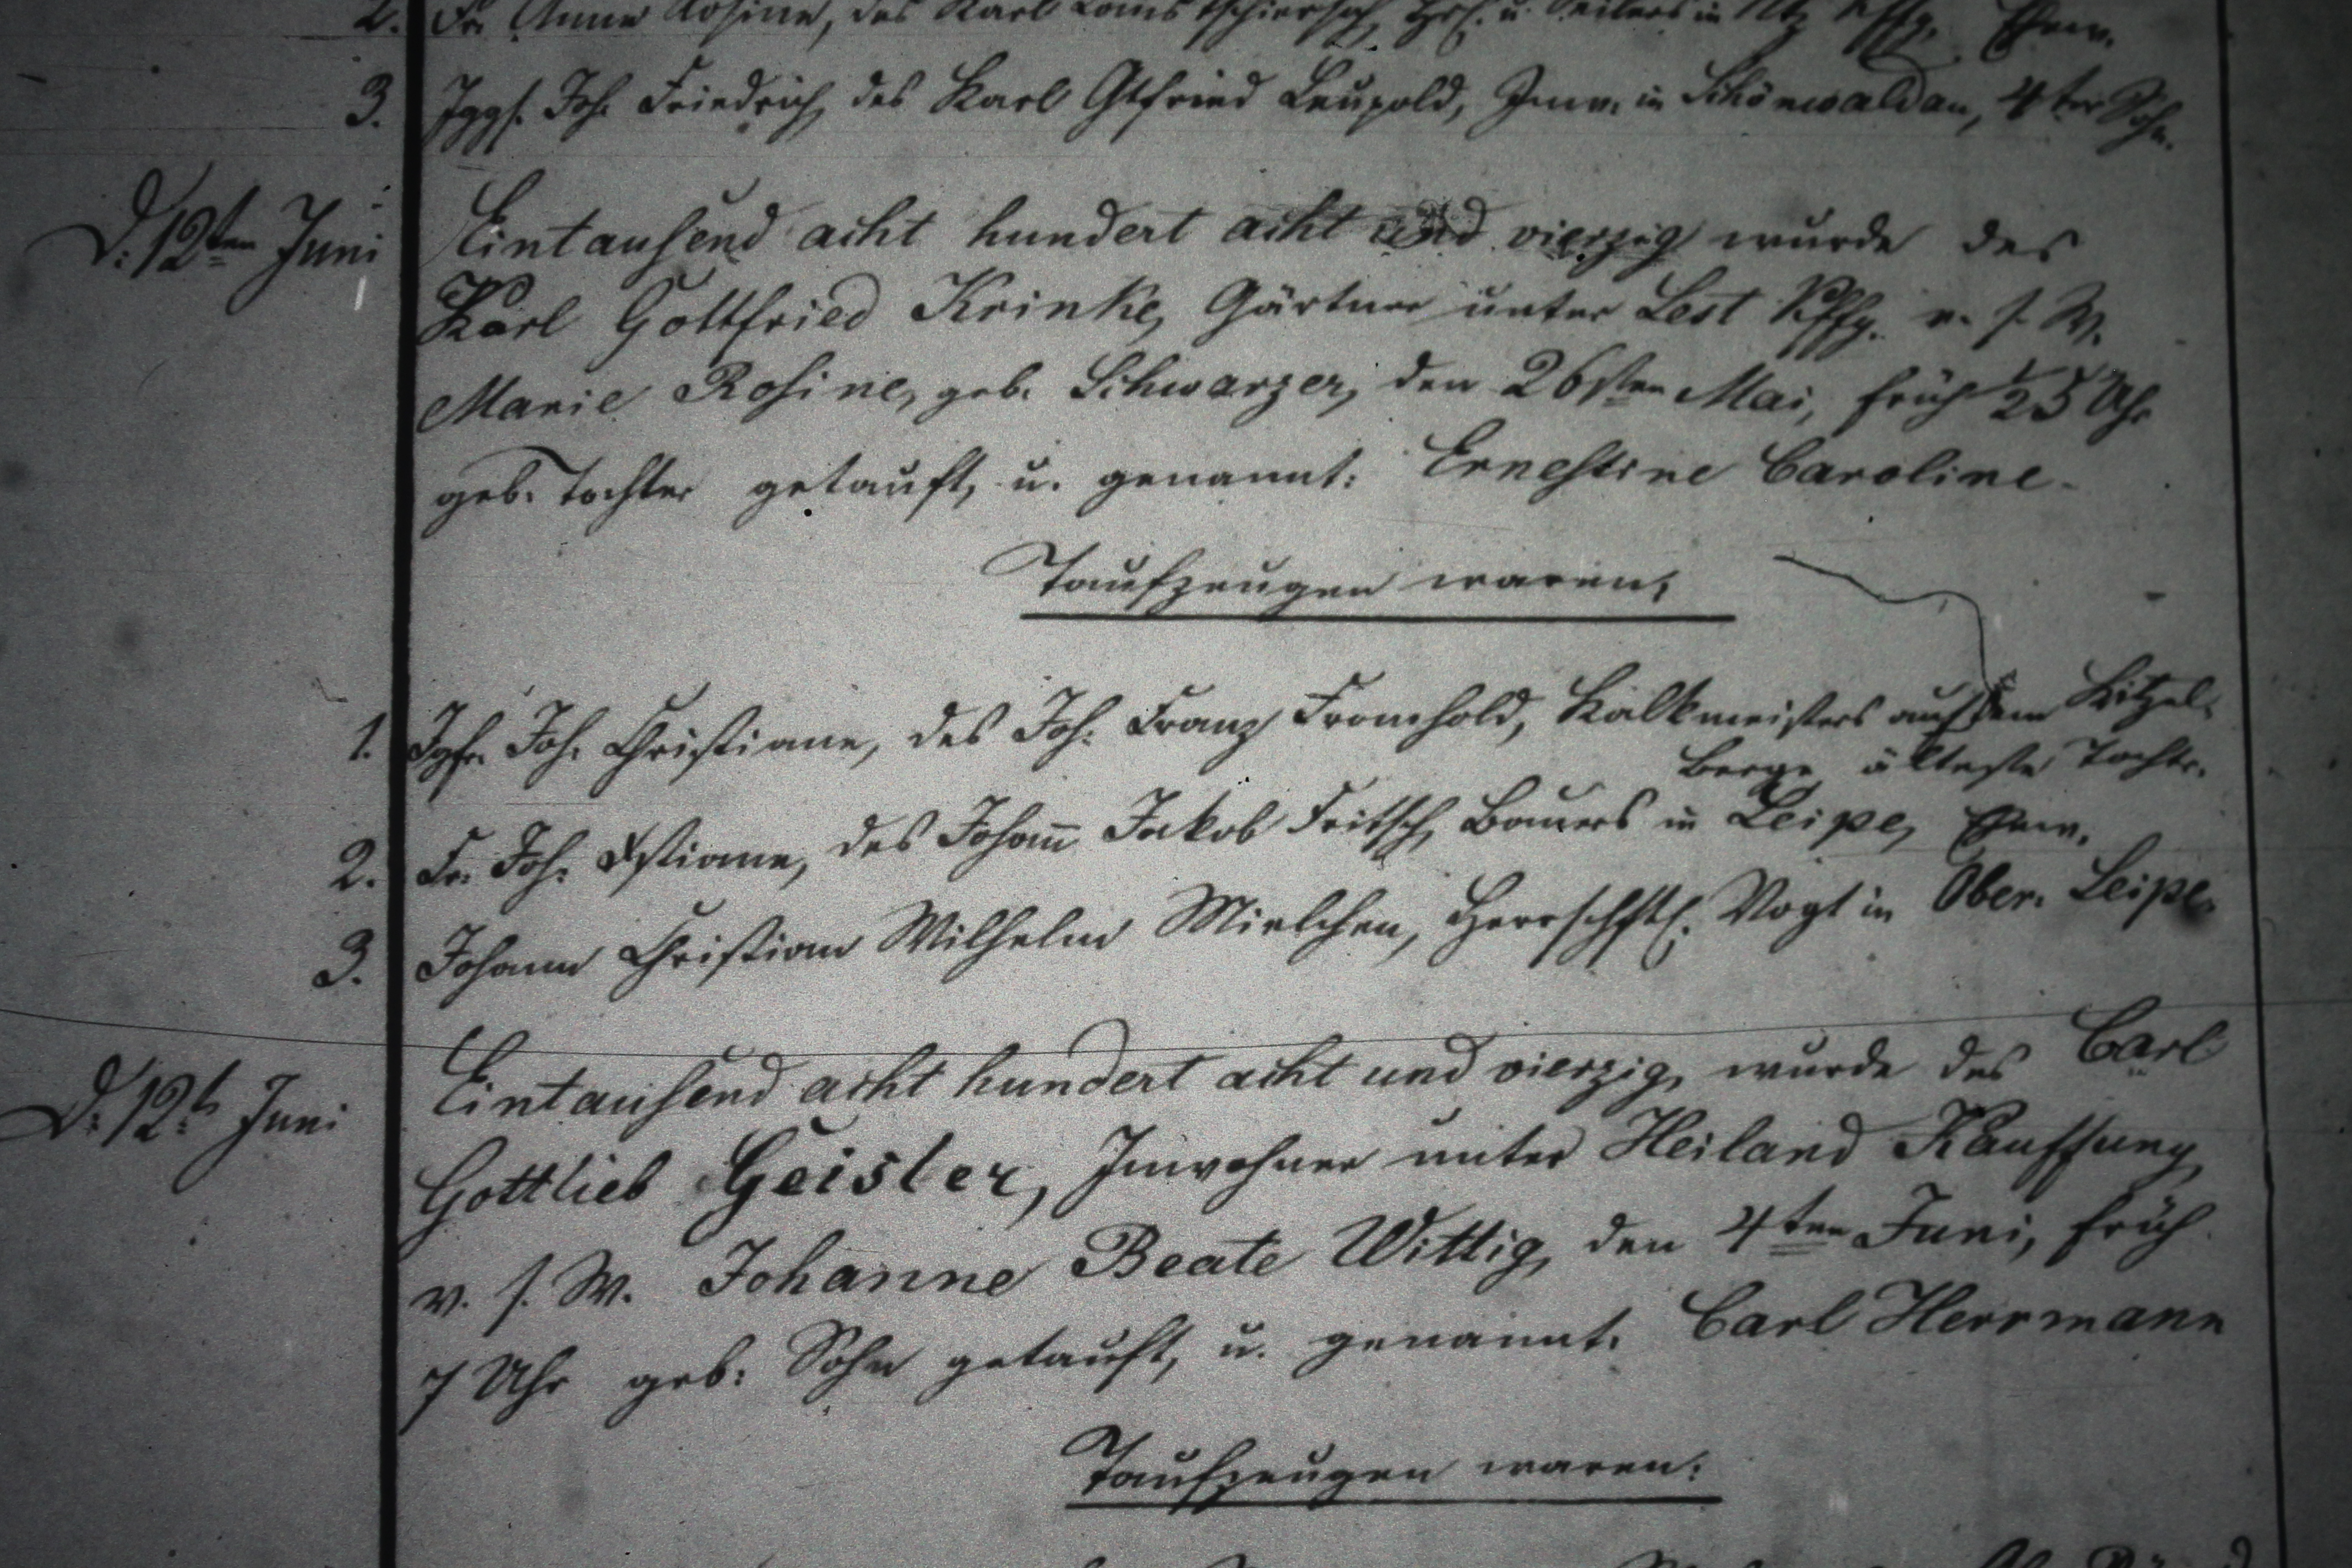 2. Fr. Anne Rosine, des Karl Louis Tschierschs, u. Seilers in Kffg. Ehew.
3. Jggs. Joh. Friedrich, des Karl Gtfried Leupold, Inw. in Schönwaldau, 4ter Sohn.
D. 12ten Juni Eintausend acht hundert acht und vierzig wurde des
Karl Gottfried Krinke, Gärtner unter Lest Kffg. v. s. W.
Marie Rosine, geb. Schwarzer, den 26sten Mai, früh ½5 Uhr
geb. Tochter getauft, u. genannt: Ernestine Caroline.
Taufzeugen waren:
1. Jgfr. Joh. Christiane, des Joh. Franz Fromhold, Kalkmeisters auf dem Kitzel-
berge älteste Tochtr.
2. Fr. Joh. Xstiane, des Johañ Jakob Fritsch, Bauers in Leipe, Ehew.
3. Johann Christian Wilhelm Mielchen, Herrschftl. Vogt in Ober. Leipe.
D. 12t. Juni Eintausend acht hundert acht und vierzig, wurde des Carl
Gottlieb Geisler, Inwohner unter Heiland Kauffung,
v. s. W. Johanne Beate Wittig, den 4ten Juni, früh
7 Uhr geb: Sohn getauft, u. genannt. Carl Herrmann
Taufzeugen waren: